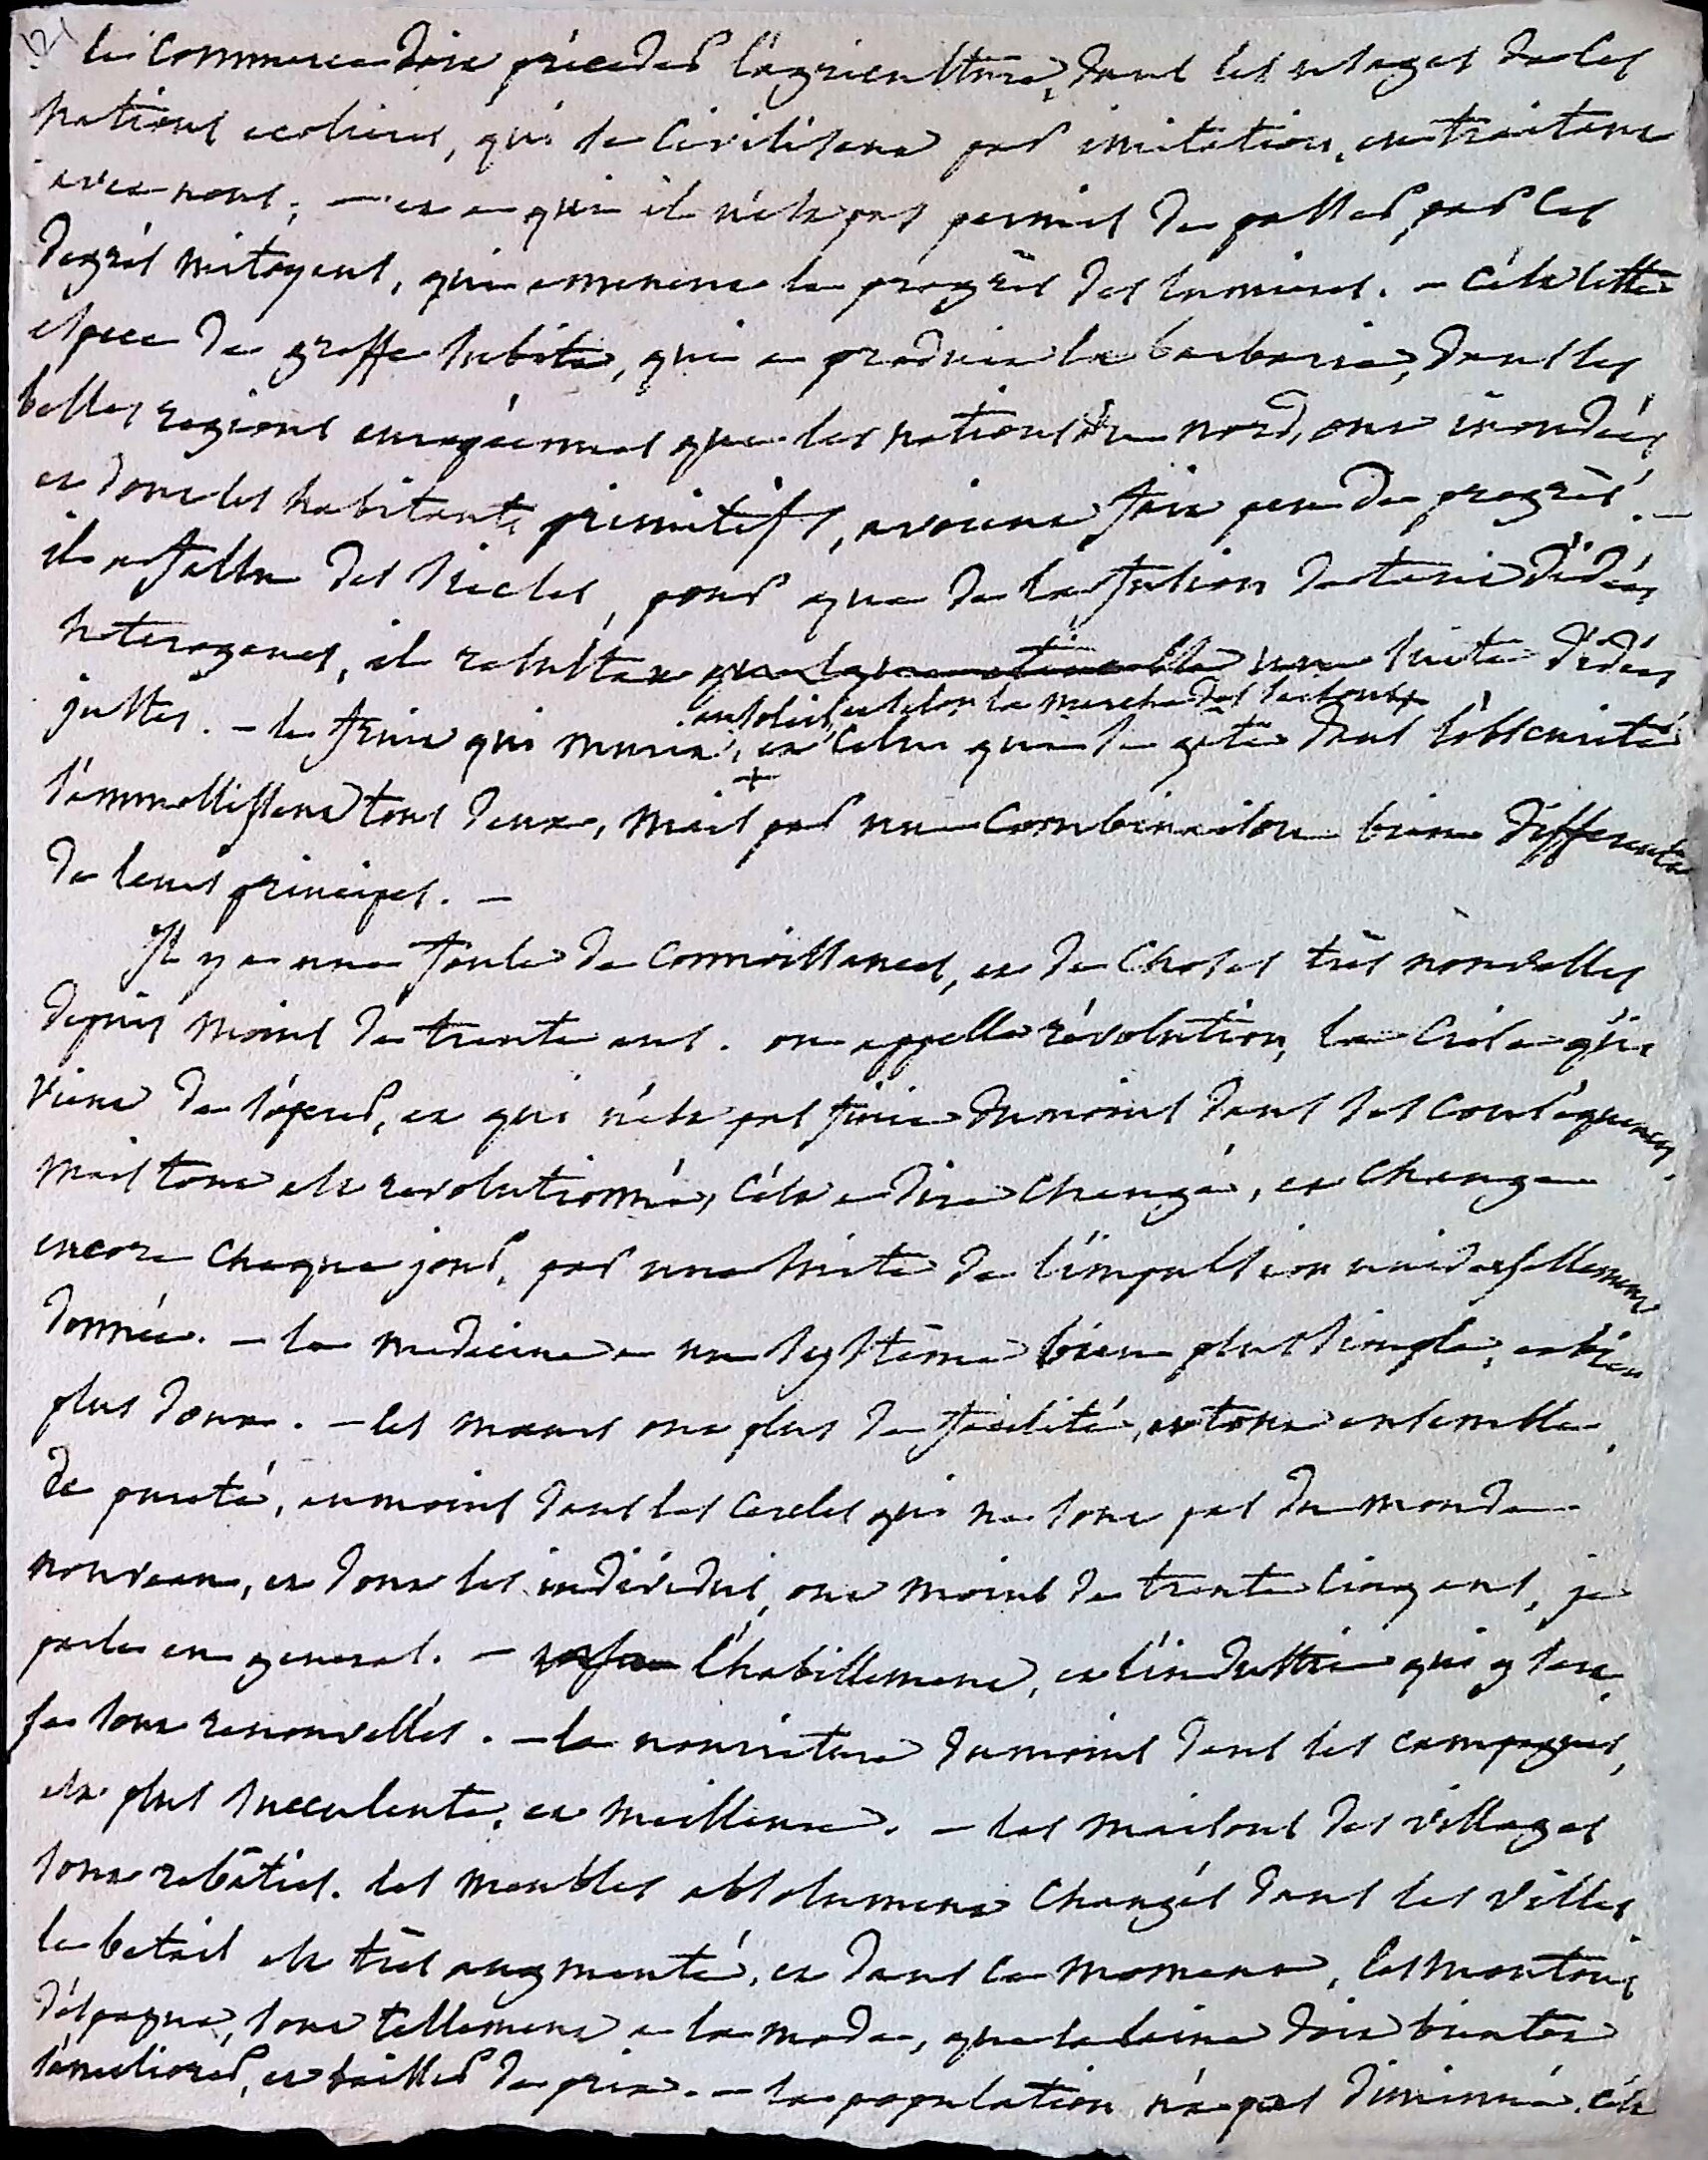 12)
le commerce doit préceder l'agriculture, dans les usages de ces
nations ecolieres, qui se civilisent par imitation, en traitant
avec nous; — et a qui il n'est pas permis de passer par les
degrés mitoyens, qui amenent le progrès des lumieres. — c'est cette
espece de greffe subite, qui a produit la barbarie, dans les
belles regions européennes que les nations du nord, ont inondées
et dont les habitants primitifs, avoient fait peu de progrès. —
il a fallu des siecles, pour que de la fusion de tant d'idées
heterogenes, il resultat une suite d'idées
justes. — le fruit qui murit, et celui qui se gate dans l'obscurité
au soleil, et selon la marche des saisons
+
s'ammollissent tous deux, mais par une combinaison bien differente
de leurs principes. —
Il y a une foule de connoissances, et de choses très nouvelles
depuis moins de trente ans. on appelle révolution, la crise qui
vient de s'operer, et qui n'est pas finie du moins dans ses conséquences.
mais tout est revolutionné, c'est a dire changé, et change
encore chaque jour, par une suite de l'impulsion universellement
donnée. — la medecine a un système bien plus simple, et bien
plus doux. — les mœurs ont plus de facilité, et tout ensemble
de pureté, au moins dans les cercles qui ne sont pas du monde
nouveau, et dont les individus, ont moins de trente cinq ans, je
parle en general. — l'habillement, et l'industrie qui y sert
se sont renouvellés. — la nourriture du moins dans les campagnes,
est plus succulente, et meilleure. — les maisons des villages
sont rebâties. les meubles absolument changés dans les villes
le betail est très augmenté, et dans ce moment, les moutons
d'éspagne, sont tellement a la mode, que la laine doit bientot
s'ameliorer, et baisser de prix. — la population n'a pas diminué. c'est